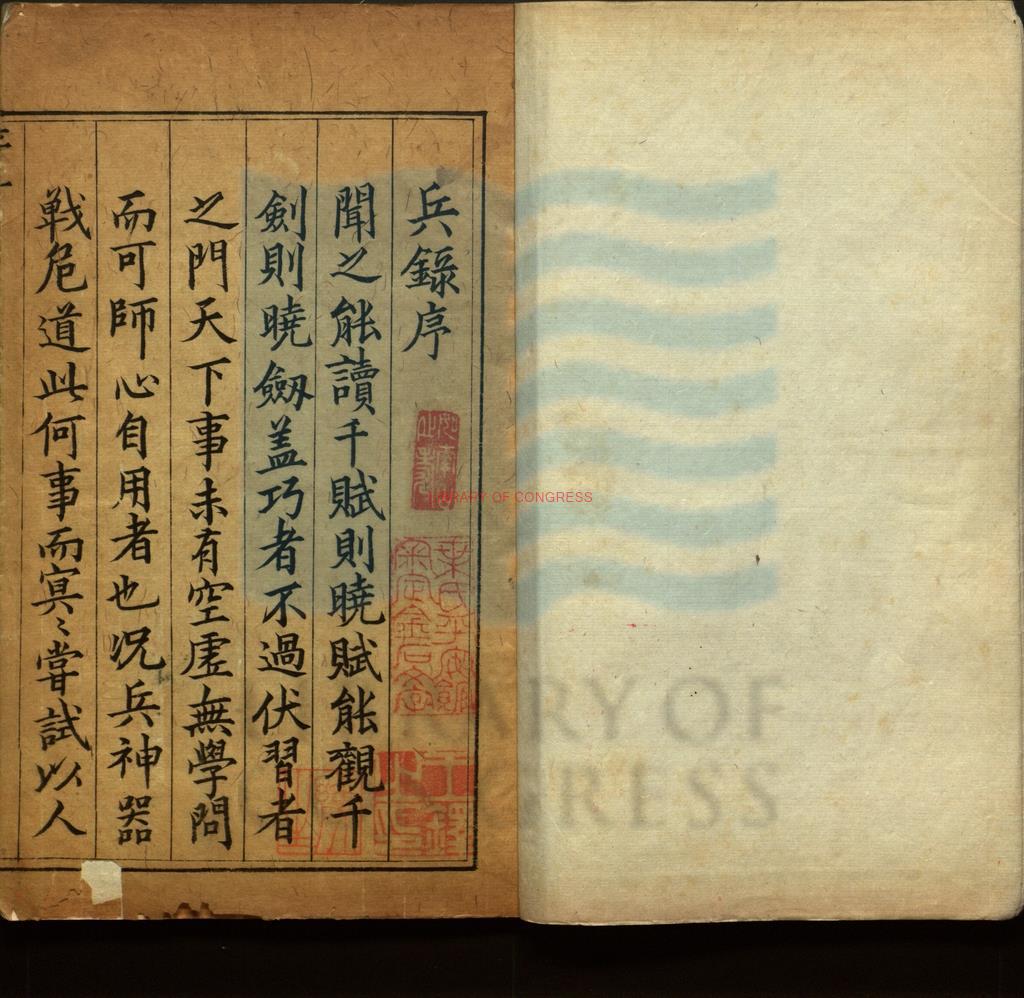 兵錄序
聞之能讀千賦則曉賦能觀千
劍則曉劔盖巧者不過伏習者
之門天下事未有空虛無學問
而可師心自用者也况兵神器
戰危道此何事而寘〻嘗試以人
LIBRARY OF CONGRESS